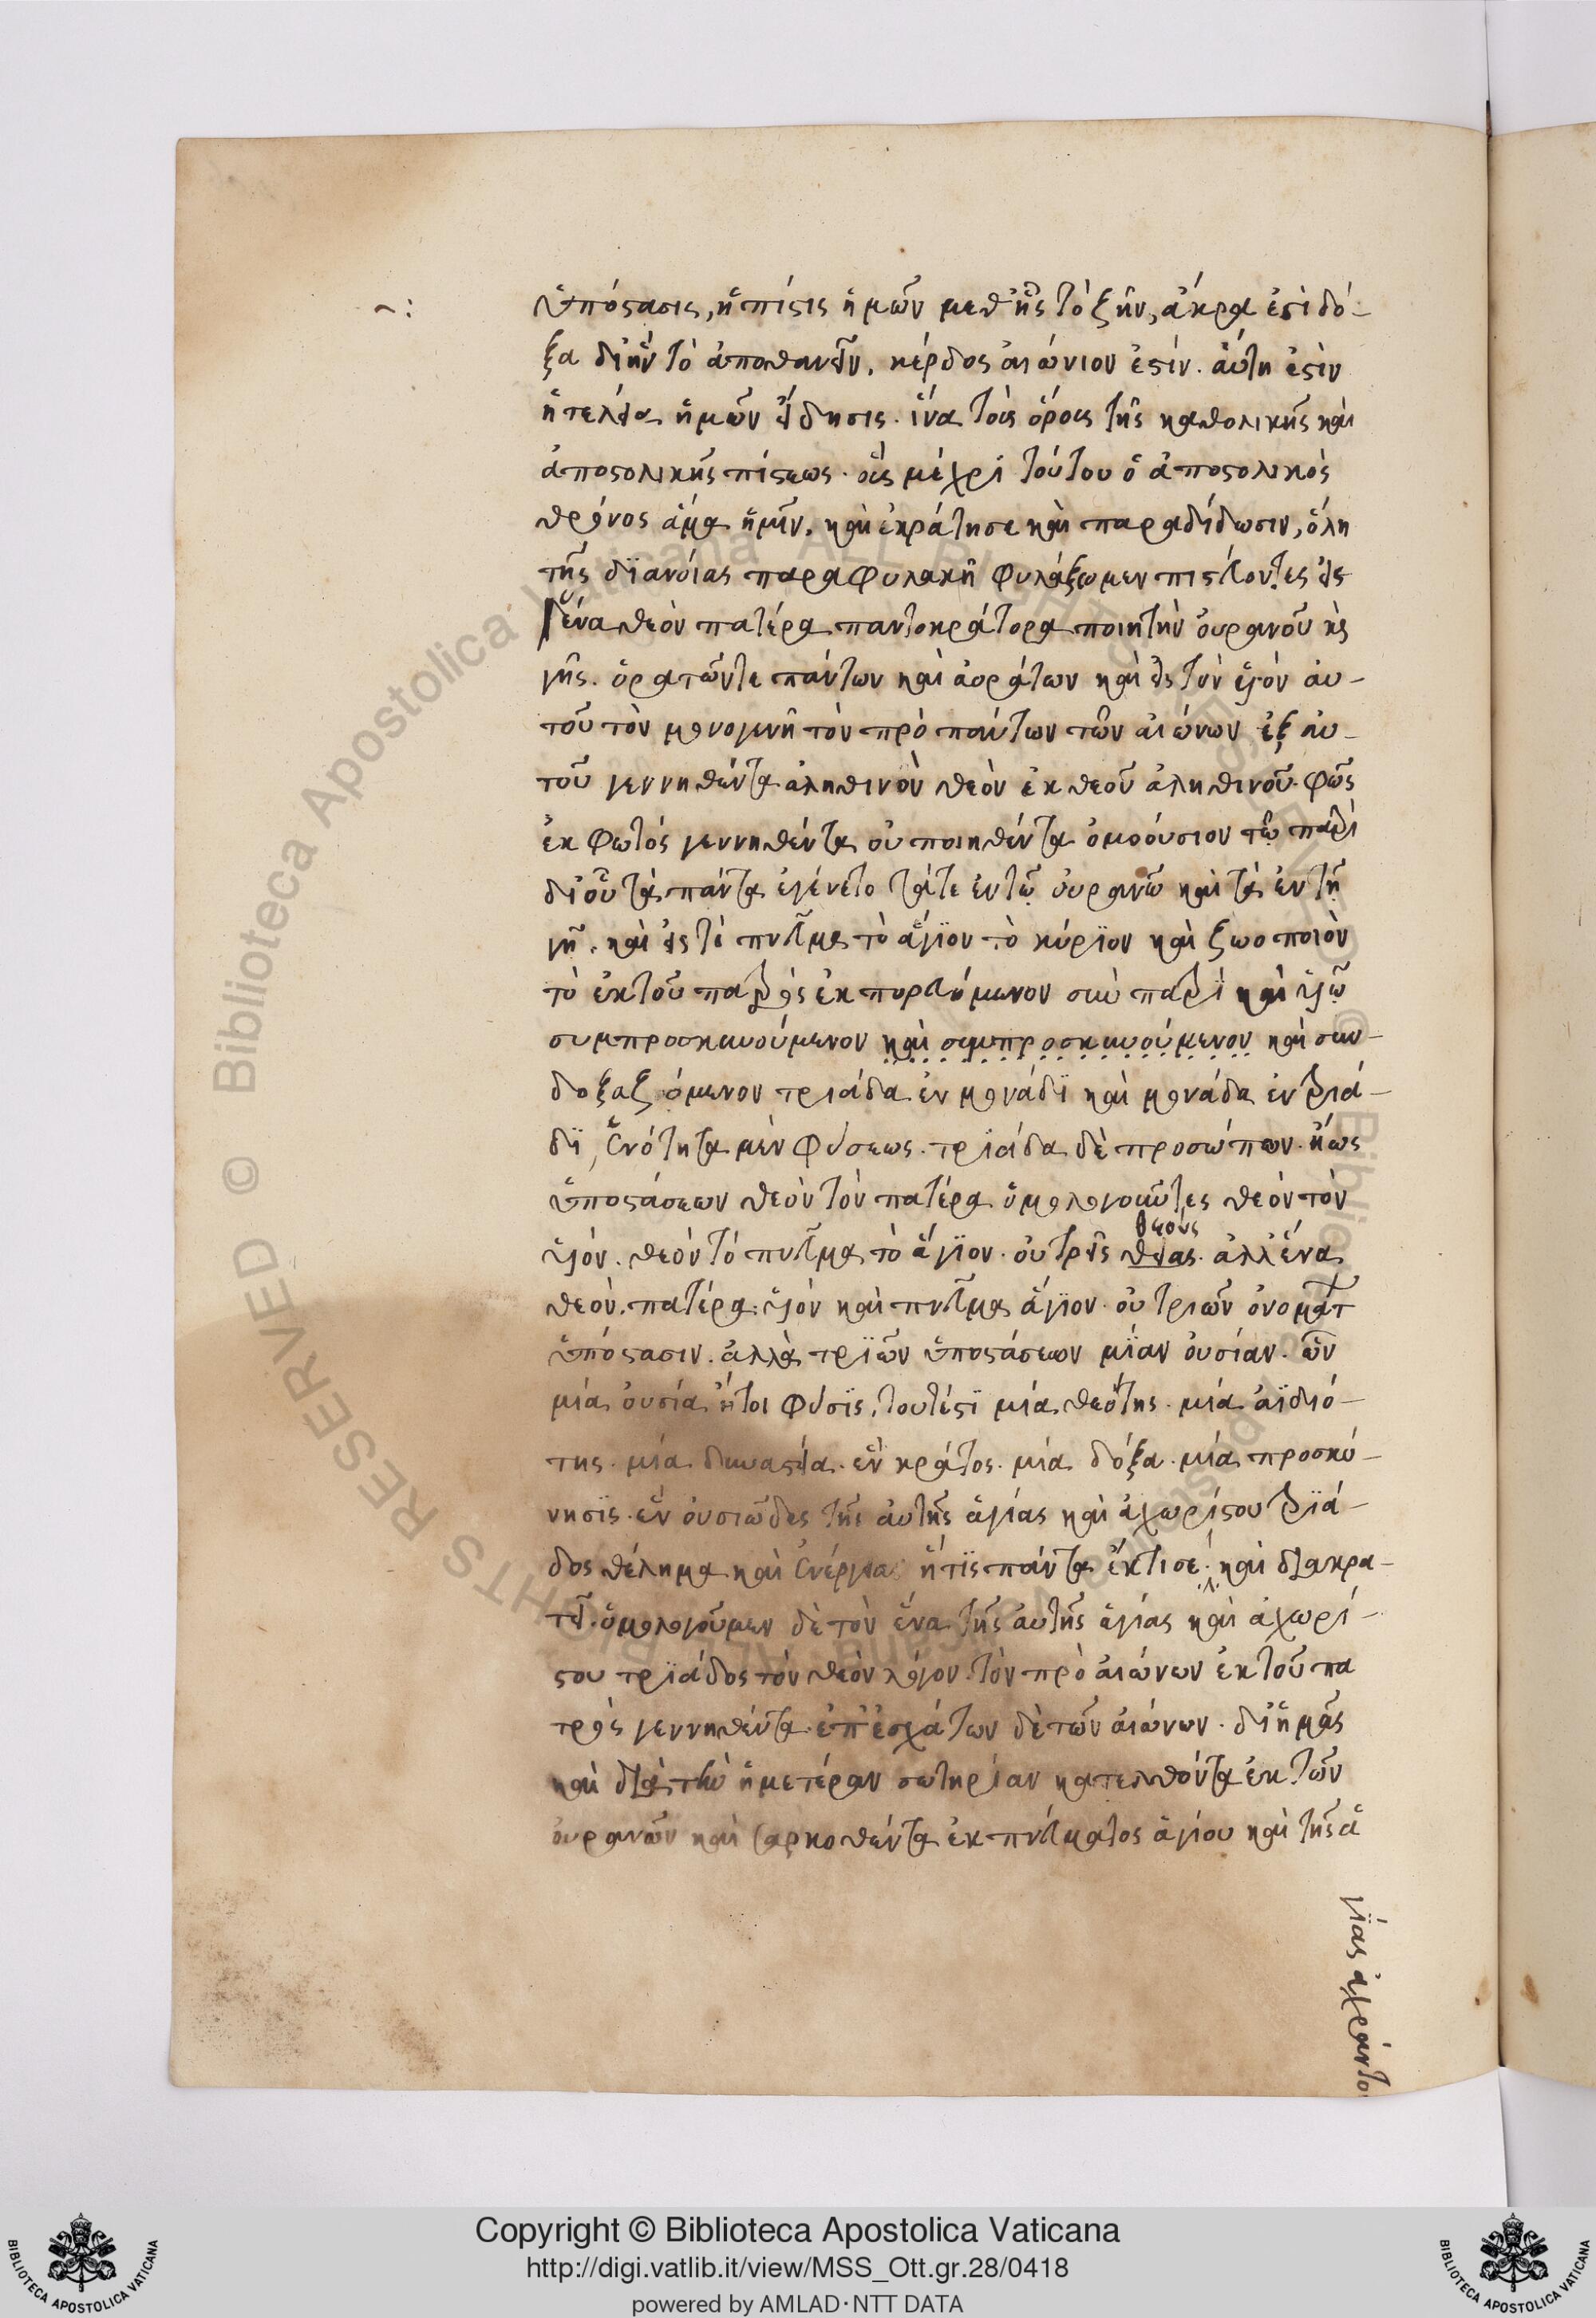 ὑπόστασις, ἡ πίστις ἡμῶν μεθ' ἧς τὸ ζῆν, ἄκρα ἐστὶ δό-
ξα δι' ἣν τὸ ἀποθανεῖν, κέρδος αἰώνιον ἐστίν. αὕτη ἐστὶν
ἡ τελεία ἡμῶν εἴδησις. ἵνα τοὺς ὅρους τῆς καθολικῆς καὶ
ἀποστολικῆς πίστεως. οὓς μέχρι τούτου ὁ ἀποστολικὸς
θρόνος ἅμα ἡμῖν, καὶ ἐκράτησε καὶ παραδίδωσιν, ὅλη
τῆς διανοίας παραφυλακῆ φυλάξωμεν πιστεύοντες εἰς
ἕνα θεὸν πατέρα παντοκράτορα ποιητὴν οὐρανοῦ κὲ
γῆς. ὁρατῶν τε πάντων καὶ ἀοράτων καὶ εἰς τὸν υἱὸν αὐ-
τοῦ τὸν μονογενῆ τὸν πρὸ πάντων τῶν αἰώνων ἐξ αὐ-
τοῦ γεννηθέντα ἀληθινὸν θεὸν ἐκ θεοῦ ἀληθινοῦ. φῶς
ἐκ φωτός γεννηθέντα οὐ ποιηθέντα ὁμοούσιον τῷ πατρὶ
δι' οὗ τὰ πάντα ἐγένετο τά τε ἐν τῷ οὐρανῶ καὶ τὰ ἐν τῇ
γῇ. καὶ εἰς τὸ πνεῦμα τὸ ἅγϊον τὸ κύρϊον καὶ ζωοποιὸν
τὸ ἐκ τοῦ πατρὸς ἐκπορευόμενον σὺν πατρὶ καὶ υἱῷ
συμπροσκυνούμενον καὶ συμπροσκυνούμενον καὶ συν-
δοξαζόμενον τριάδα ἐν μονάδϊ καὶ μονάδα ἐν τριά-
δϊ, ἑνότητα μὲν φύσεως. τρϊάδα δὲ προσώπων. ἤως
ὑποστάσεων θεὸν τὸν πατέρα ὁμολογοῦντες θεὸν τὸν
υἱόν. θεὸν τὸ πνεῦμα τὸ ἅγϊον. οὐ τρεῖς
θεούς
θείας. ἀλλ' ἕνα
θεὸν. πατέρα. υἱὸν καὶ πνεῦμα ἅγϊον. οὐ τριῶν ὀνομάτ
ὑπόστασιν. ἀλλὰ τρϊῶν ὑποστάσεων μίαν οὐσίαν. ὧν
μία οὐσία ἤτοι φύσϊς, τουτέστϊ μία θεότης. μία ἀϊδιό-
της. μία δυναστεία. ἓν κράτος. μία δόξα. μία προσκύ-
νησϊς. ἓν οὐσιῶδες τῆς αὐτῆς ἁγίας καὶ ἀχωρίστου τρϊά-
δος θέλημα καὶ ἐνέργεια ἥτϊς πάντα ἔκτισε. καὶ διακρα-
τεῖ. ὁμολογοῦμεν δὲ τὸν ἕνα τῆς αὐτῆς ἁγίας καὶ ἀχωρί-
στου τρϊάδος τὸν θεὸν λόγον. τὸν πρὸ αἰώνων ἐκ τοῦ πα
τρὸς γεννηθέντα. ἐπ' ἐσχάτων δὲ τῶν αἰώνων. δι' ἡμᾶς
καὶ διὰ τὴν ἡμετέραν σωτηρίαν κατελθόντα ἐκ τῶν
οὐρανῶν καὶ σαρκοθέντα ἐκ πνεύματος ἁγίου καὶ τῆς ἁ
γίας ἀχράντο
Copyright © Biblioteca Apostolica Vaticana
http://digi.vatlib.it/view/MSS_Ott.gr.28/0418
powered by AMLAD·NTT DATA
BIBLIOTECA APOSTOLICA VATICANA
BIBLIOTECA APOSTOLICA VATICANA